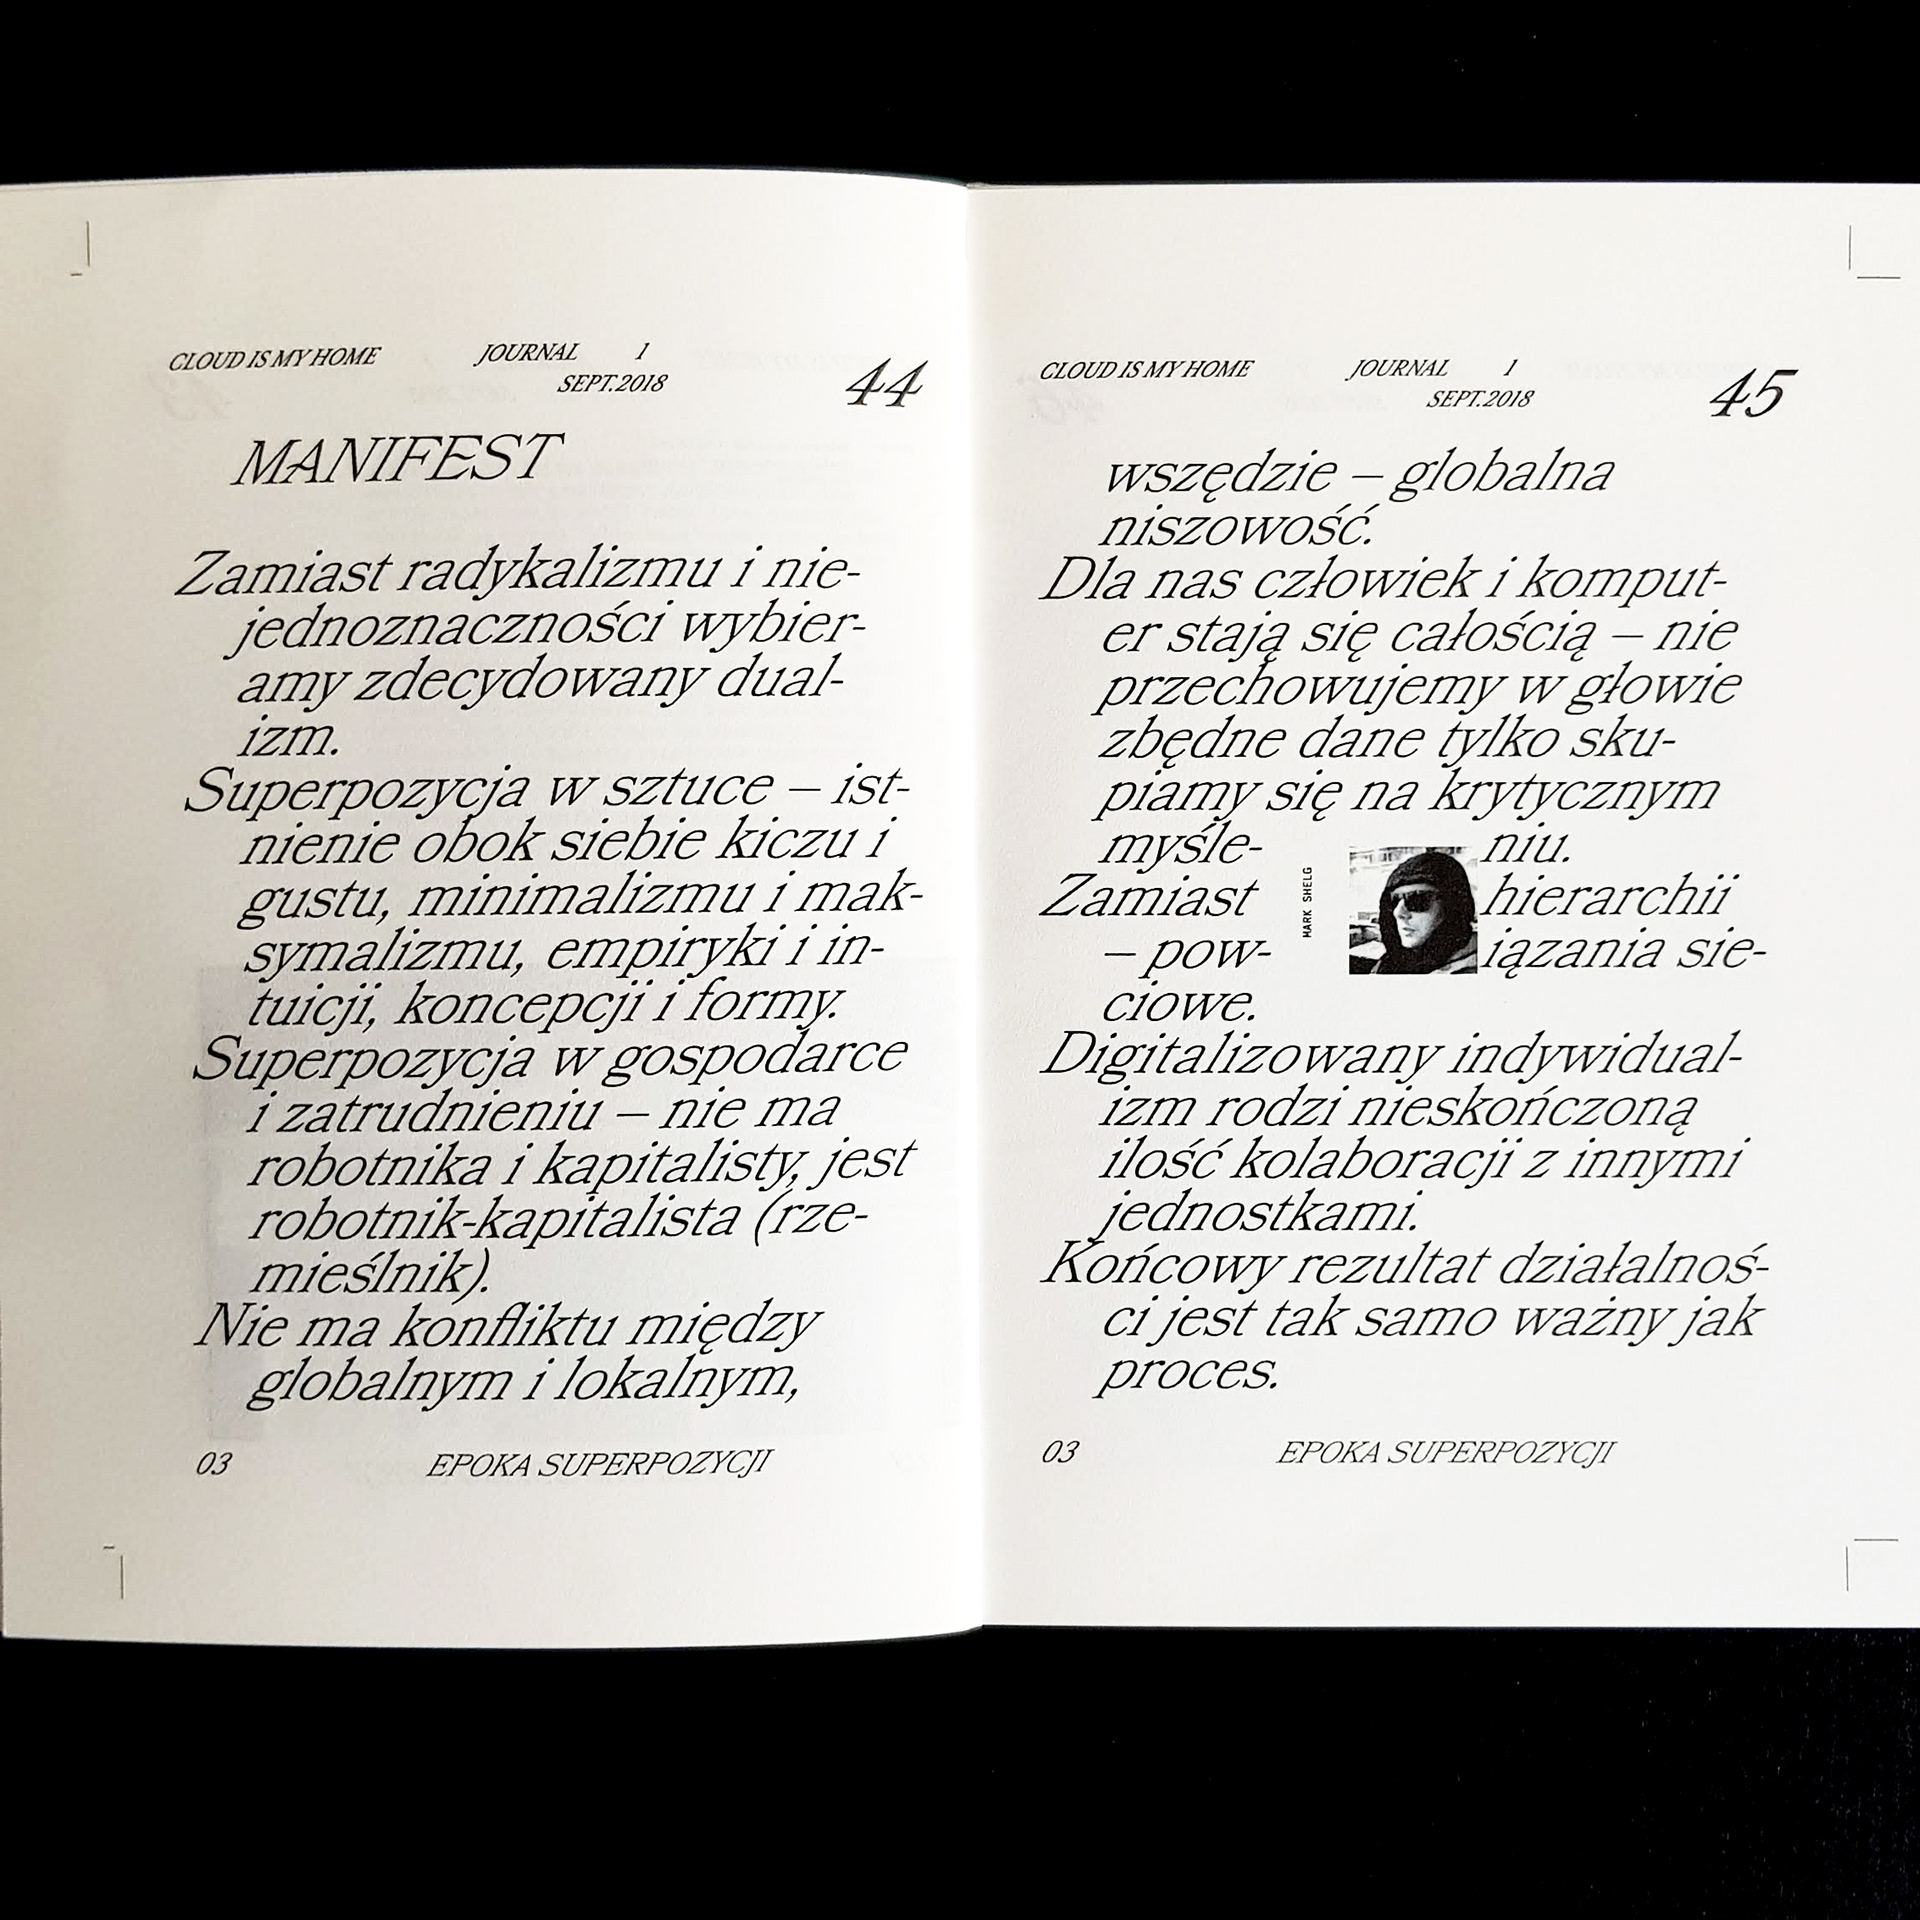 CLOUD IS MY HOME JOURNAL 1
SEPT.2018
44
MANIFEST
Zamiast radykalizmu i nie-
jednoznaczności wybier-
amy zdecydowany dual-
izm.
Superpozycja w sztuce – ist-
nienie obok siebie kiczu i
gustu, minimalizmu i mak-
symalizmu, empiryki i in-
tuicji, koncepcji i formy.
Superpozycja w gospodarce
i zatrudnieniu – nie ma
robotnika i kapitalisty, jest
robotnik-kapitalista (rze-
mieślnik).
Nie ma konfliktu między
globalnym i lokalnym,
03 EPOKA SUPERPOZYCJI
CLOUD IS MY HOME JOURNAL 1
SEPT.2018
45
wszędzie – globalna
niszowość.
Dla nas człowiek i komput-
er stają się całością – nie
przechowujemy w głowie
zbędne dane tylko sku-
piamy się na krytycznym
myśle- niu.
Zamiast hierarchii
– pow- iązania sie-
ciowe.
MARK SHELG
Digitalizowany indywidual-
izm rodzi nieskończoną
ilość kolaboracji z innymi
jednostkami.
Końcowy rezultat działalnoś-
ci jest tak samo ważny jak
proces.
03 EPOKA SUPERPOZYCJI